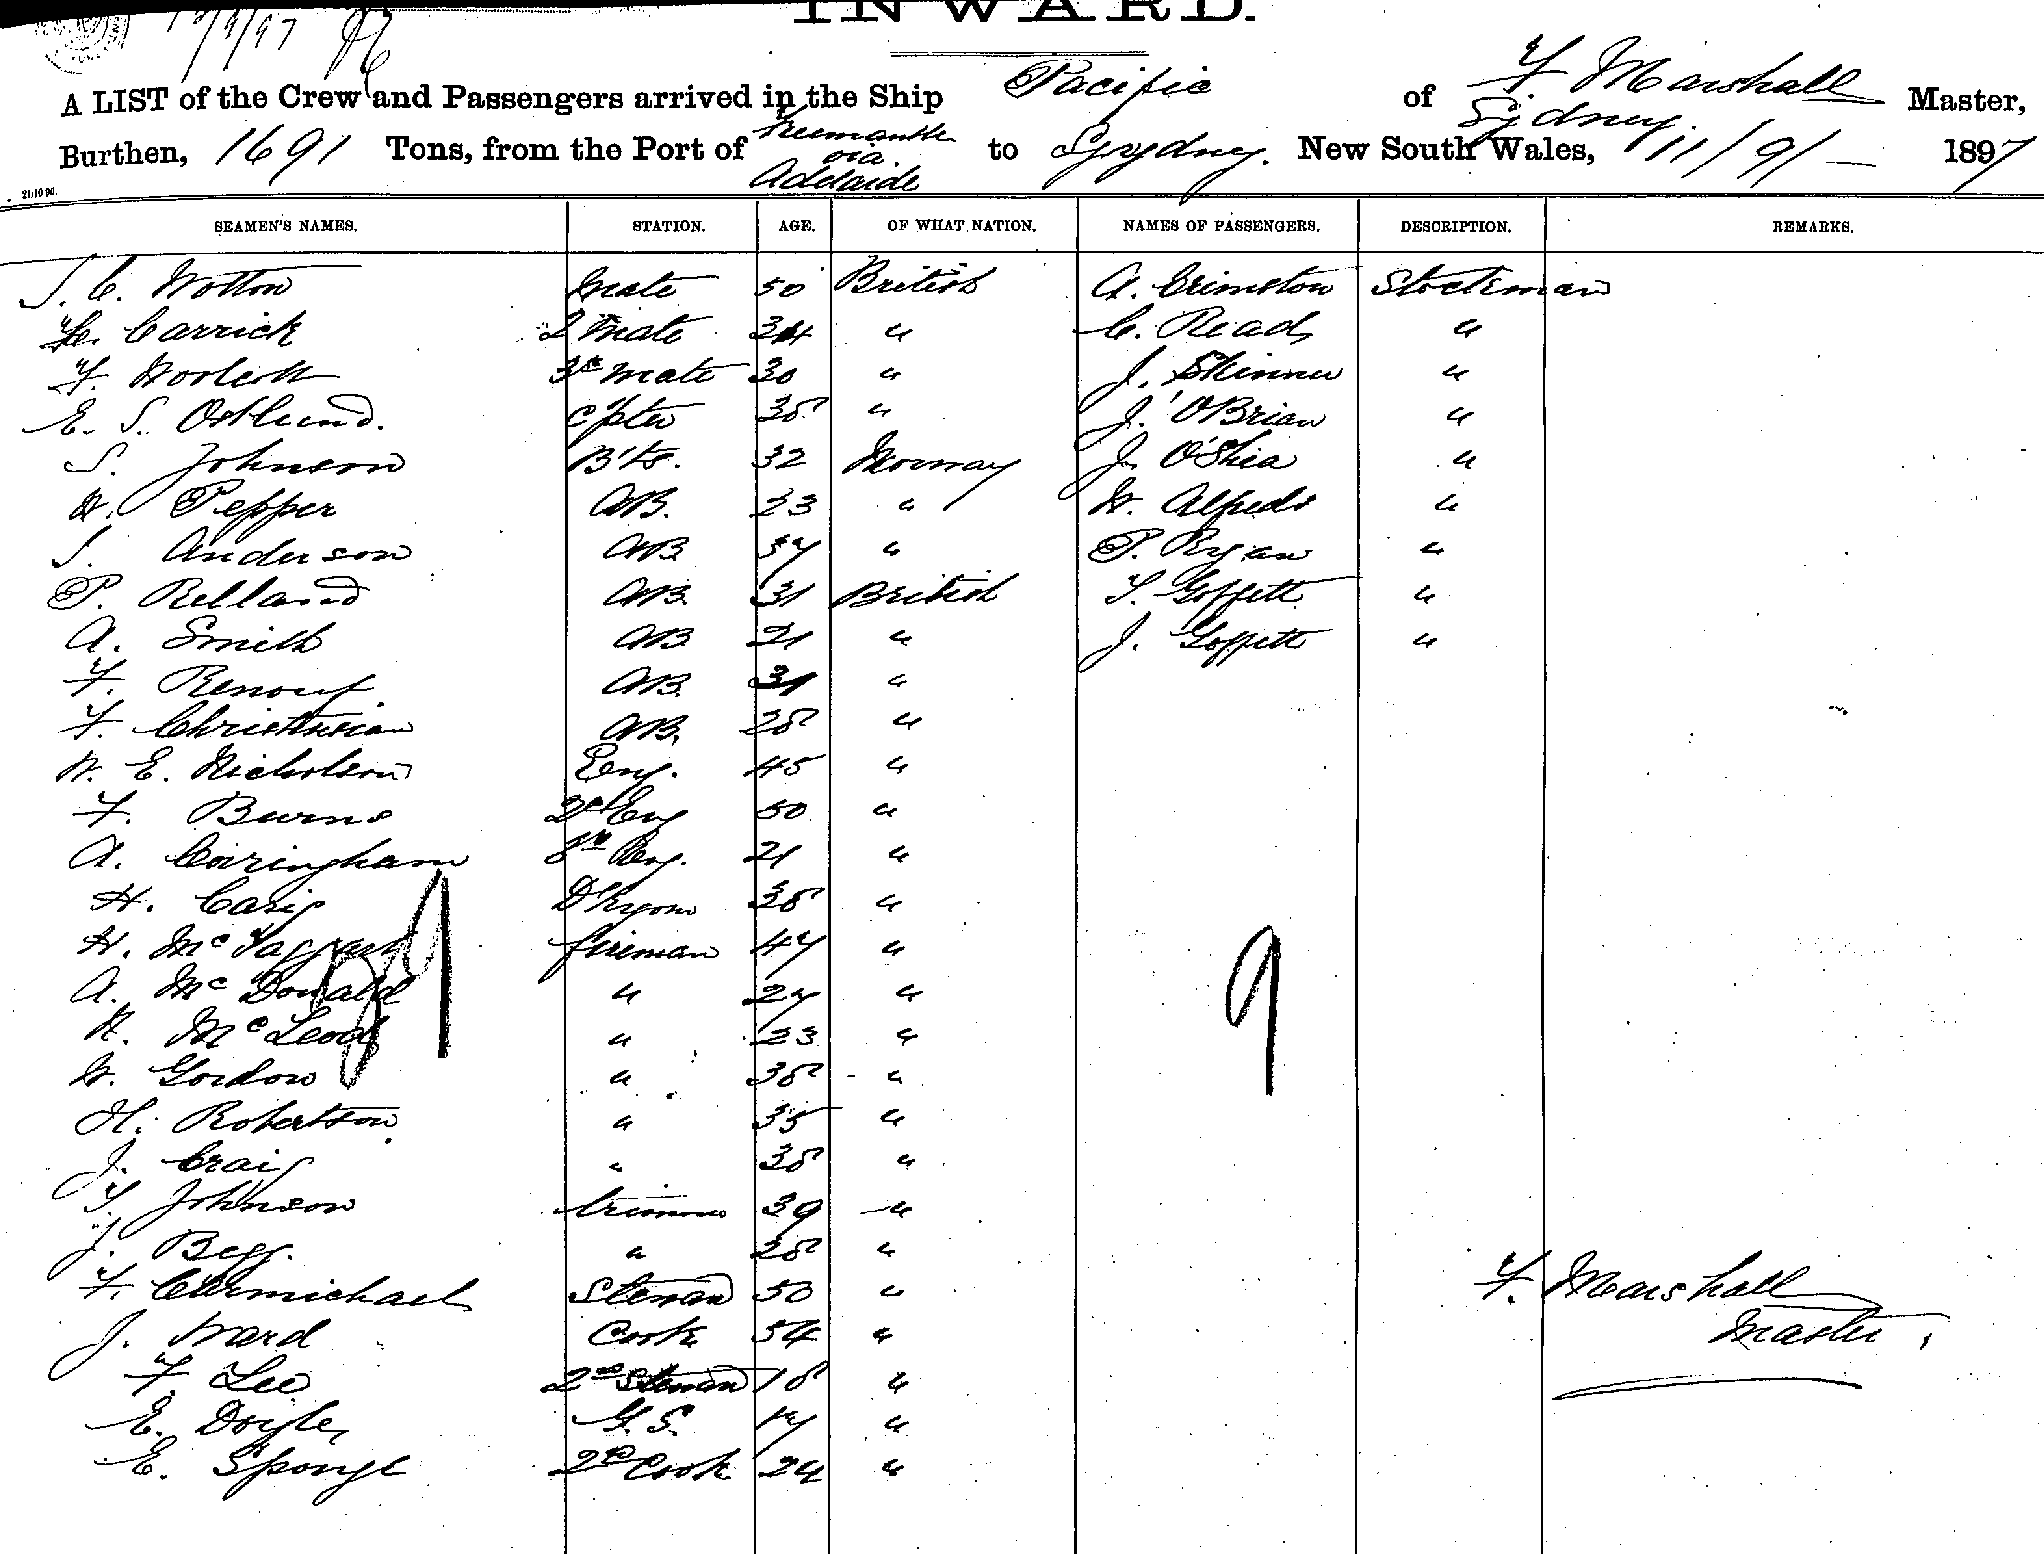 INWARD.
A LIST of the Crew and Passengers arrived in the Ship Pacific of Sydney F Marshall Master,
Burthen, 1691 Tons, from the Port of Freemantle via Adelaide to Sydney. New South Wales, 11/9/ 1897
SEAMEN'S NAMES. STATION. AGE. OF WHAT NATION. NAMES OF PASSENGERS. DESCRIPTION. REMARKS.
Wotton Mate 50 British A. Grimston Stockman
Carrick 2 Mate 34 " C. Read "
F. 3rd Mate 30 " J. Skinner "
E. S. Ostlund. 38 " J. O'Brian "
S. Johnson 32 Norway J. O'Shia "
Pepper AB. 23 " W. Alfred "
S. Anderson AB 37 " P. Ryan "
P. Relland AB. 31 British T. Goffett "
A. Smith AB 21 " J. Goffett "
F. Renouf AB. 31 "
F. AB. 28 "
W. E. Nicholson Eng. 45 "
F. Burns 2d Eng 50 "
A. Eng. 21 "
H. 38 "
H. McTaggart fireman 47 "
A. McDonald " 27 "
N. McLeod " 23 "
W. Gordon " 38 "
H. Robertson " 35 "
J. Craig " 38 "
T. Johnson trimmer 39 "
J. Begg. " 28 "
F. Carmichael Steward 50 " F. Marshall
J. Ward Cook 54 " Master
F. Lee 2nd Steward 18 "
E. Doyle G. S. 17 "
E. Sponge 2nd Cook 24 "
29
9